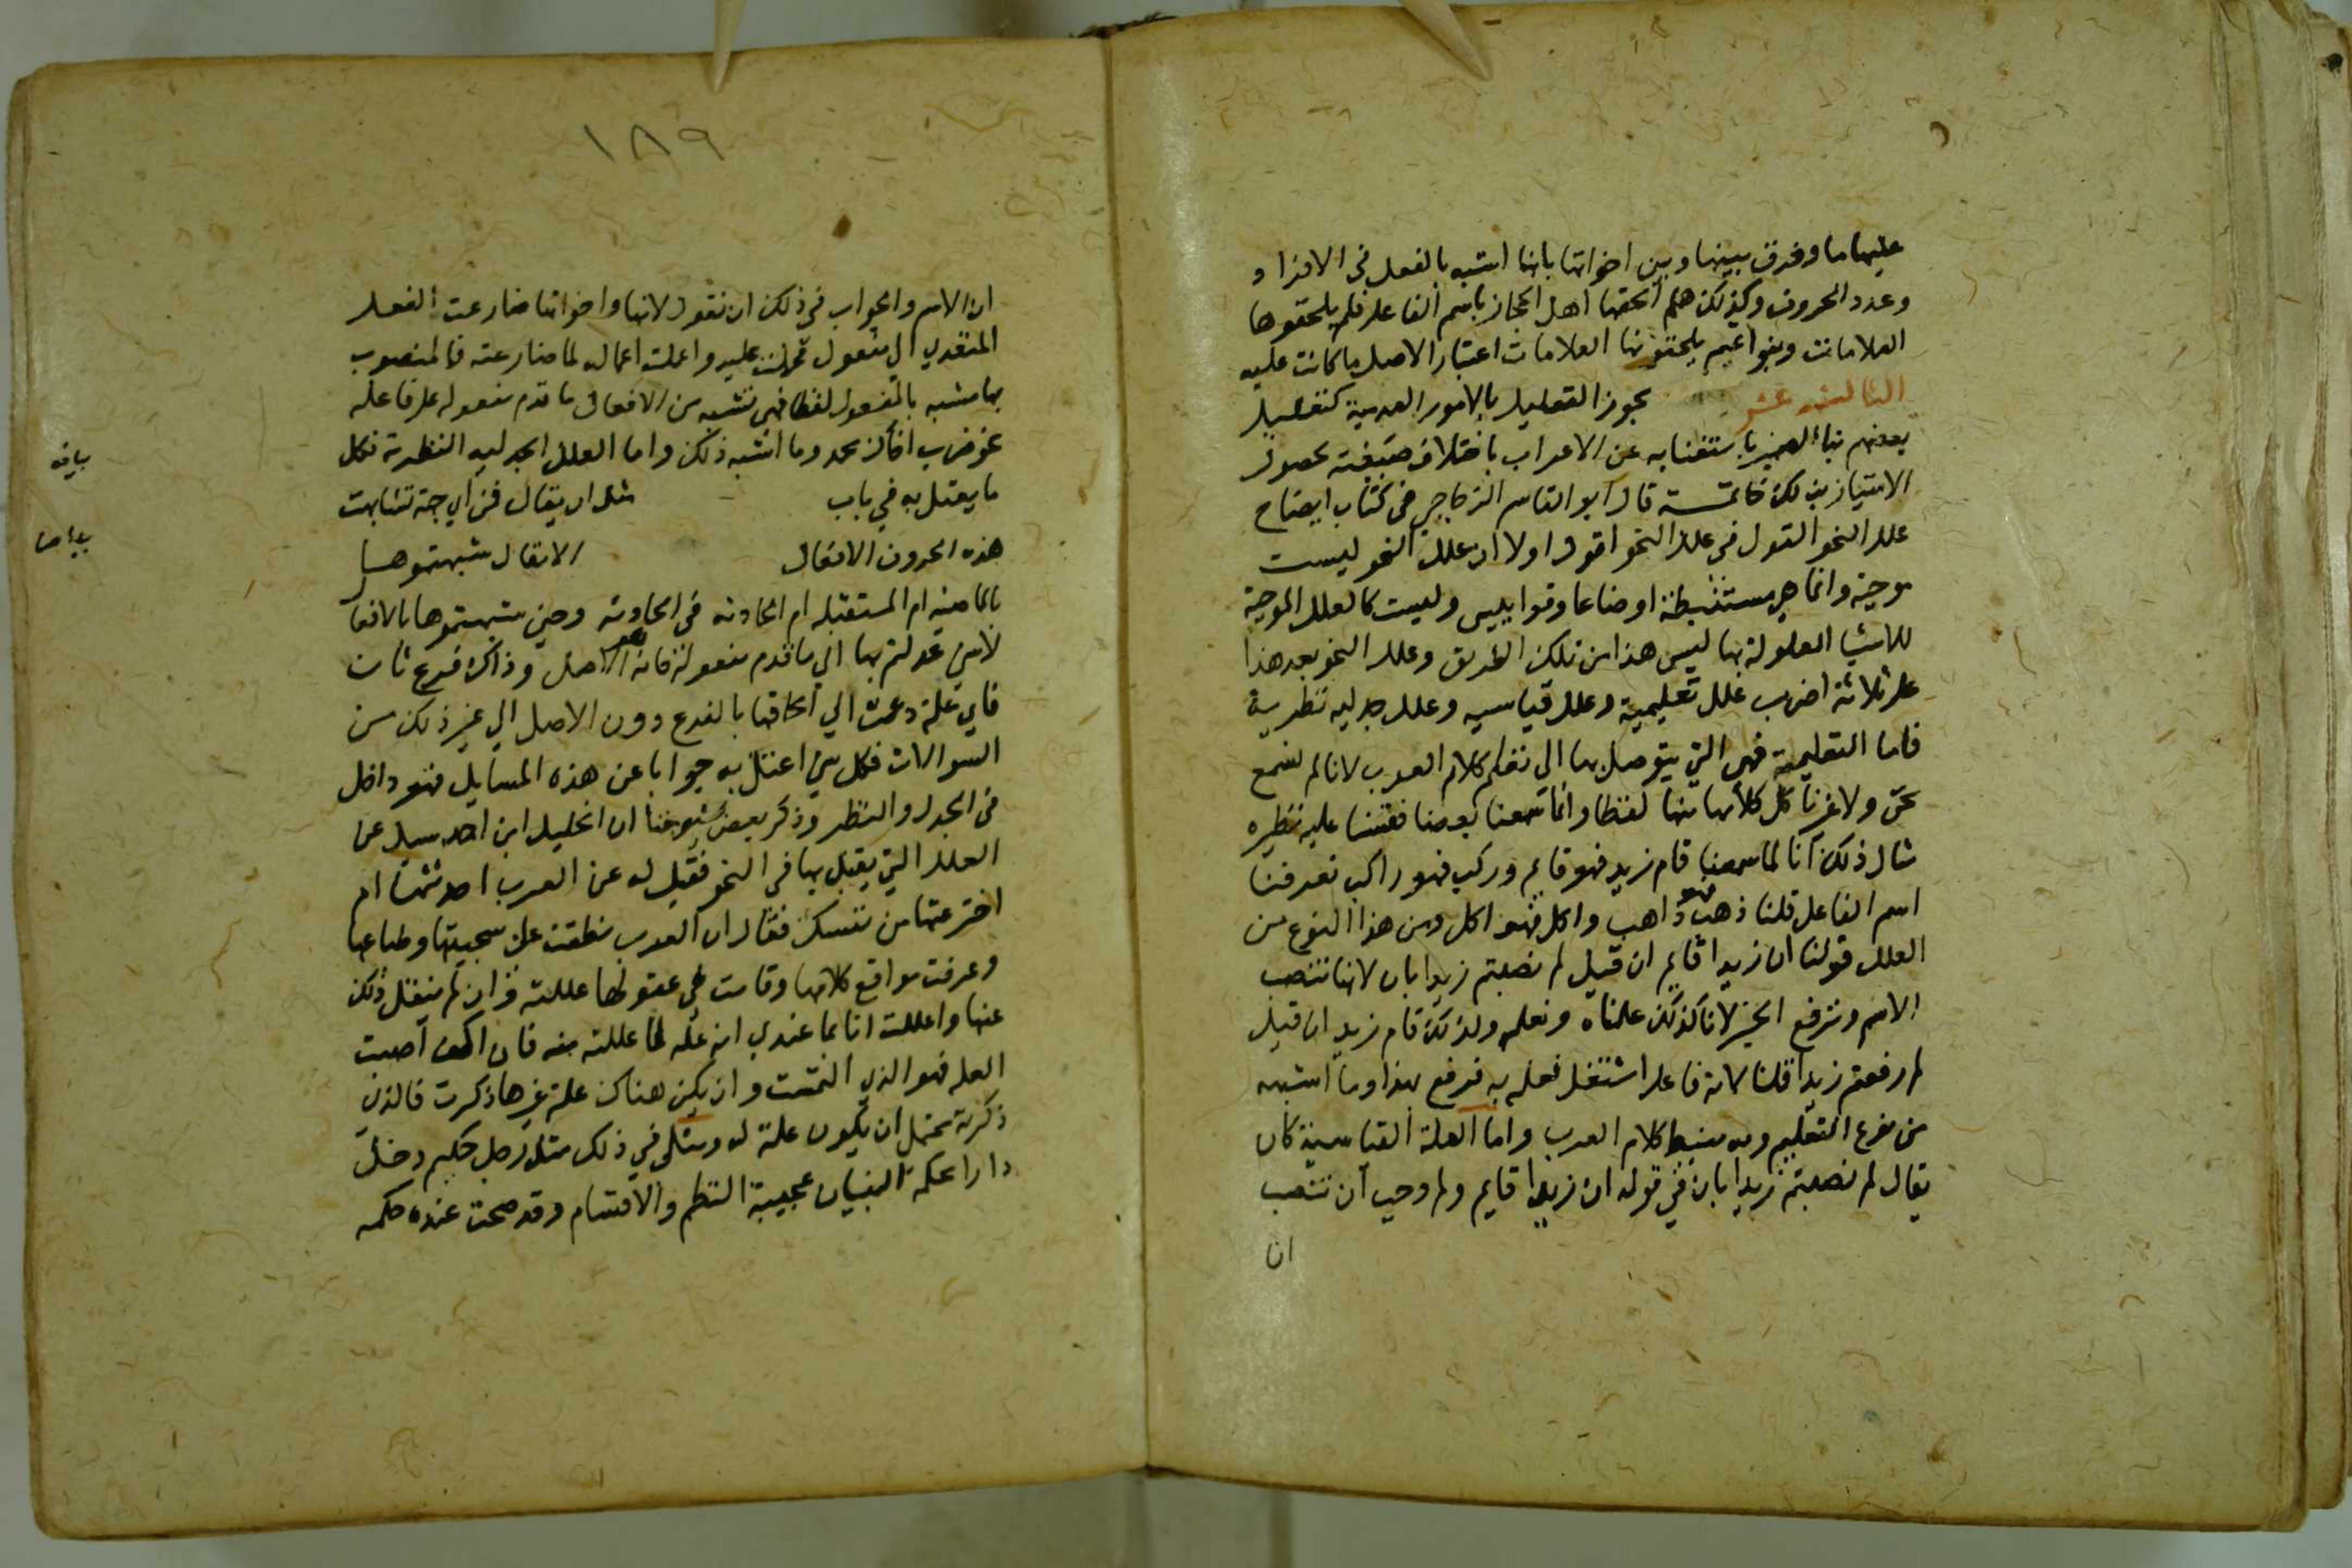 عليها ما وفرق بينها وبين اخواتها بانها اشبه بالفعل في الافراد
وعدد الحروف وكذلك هلم الحقها اهل الحجاز باسم الفاعل فلم يلحقوها
العلامات وبنوا تميم يلحقونها العلامات اعتبار الاصل ما كانت عليه
الثالثه عشر يجوز التعليل بالامور العدمية كتعليل
بعضهم بناء الضمير باستغنايه عن الاعراب باختلاف صيغته لحصول
الامتياز بذلك خاتمسة قال ابو القاسم الزجاجي في كتاب ايضاح
علل النحو القول في علل النحو اقول اولا ان علل النحو ليست
موجبة وانما هي مستنبطة اوضاعا وقواييس وليست كالعلل الموجبة
للاشيا المعلولة بها ليس هذا من تلك الطريق وعلل النحو بعد هذا
على ثلاثة اضرب علل تعليمية وعلل قياسيه وعلل جدليه نظرية
فاما التعليمية فهى التي يتوصل بها الى تعلم كلام العرب لانا لم نسمع
نحن ولا غيرنا كل كلامها منها لفظا وانما سمعنا بعضا فقسنا عليه نظيره
مثال ذلك انا لما سمعنا قام زيد فهو قايم وركب فهو راكب فعرفنا
اسم الفاعل قلنا ذهب فهو ذاهب واكل فهو اكل ومن هذا النوع من
العلل قولنا ان زيدا قايم ان قيل لم نصبتم زيدا بان لانها تنصب
الاسم وترفع الخبر لانا كذلك علمناه ونعلمه ولذلك قام زيد ان قيل
لم رفعتم زيدا قلنا لانه فاعل اشتغل فعله به فرفع بهذا وما اشبهه
من نوع التعليم وبه ضبط كلام العرب واما العلة القياسية كان
يقال لم نصبتم زيدا بان في قوله ان زيدا قايم ولم وجب ان تنصب
ان
١٨٩
ان الاسم والجواب في ذلك ان نقول لانها واخواتها ضارعت الفعل
المتعدي الي مفعول فحملت عليه واعملت اعماله لما ضارعته فالمنصوب
بها مشبه بالمفعول لفظا فهى تشبه من الافعال ما قدم مفعوله على فاعله
نحو ضرب اخاك محمد وما اشبه ذلك واما العلل الجدليه النظرية فكل
ما يعتل به في باب مثل ان يقال فمن اي جهة تشابهت
هذه الحروف الافعال الافعال شبهتموها
بالماضيه ام المستقبله ام الحادثه في الحادثه وحين شبهتموها بالافعا
لاي شي عدلتم بها الي ما قدم مفعوله فانه هو الاصل وذاك فرع ثان
فاي علة دعت الي الحاقها بالفرع دون الاصل الي غير ذلك من
السوالات فكل شي اعتل به جوابا عن هذه المسايل فهو داخل
في الجدل والنظر وذكر بعض شيوخنا ان الخليل ابن احمد سيل عن
العلل التي يعتل بها في النحو فقيل له عن العرب اخذتها ام
اخترعتها من نفسك فقال ان العرب نطقت على سجيتها وطباعها
وعرفت مواقع كلامها وقامت في عقولها علله وان لم ينقل ذلك
عنها واعللت انا بما عندي انه علة لما عللته منه فان اكن اصبت
العله فهو الذي التمست وان يكن هناك علة غير ما ذكرت فالذي
ذكرته محتمل ان يكون علة له ومثلي في ذلك مثل رجل حكيم دخل
دارا محكمة البنيان عجيبة النظم والاقسام وقد صحت عنده حكمه